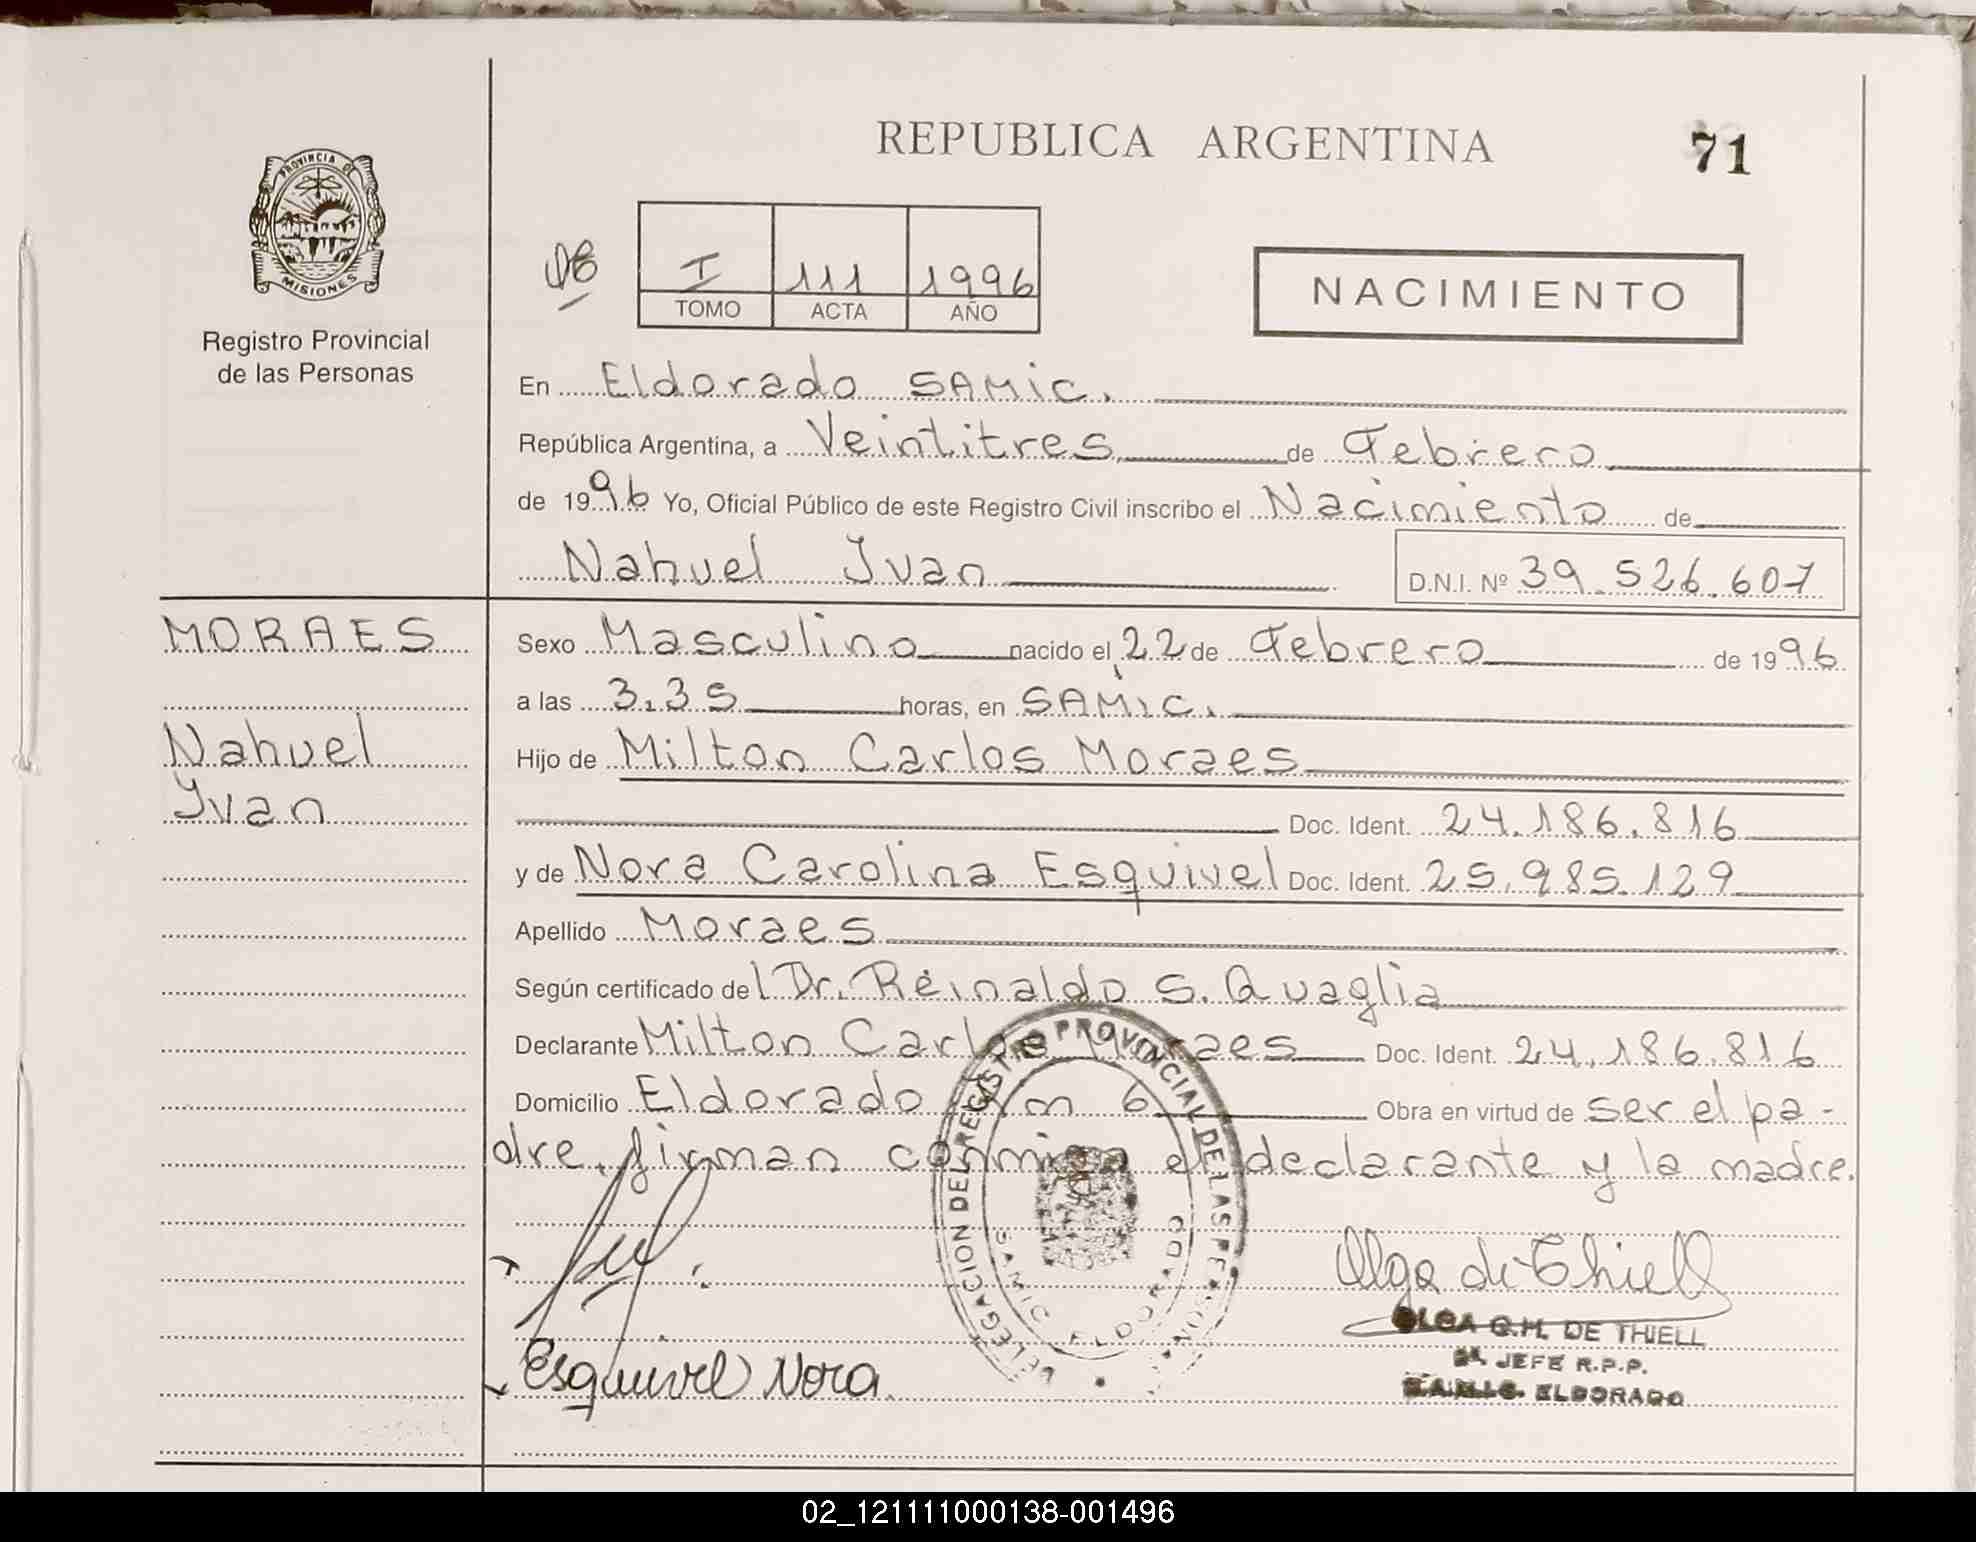 REPUBLICA ARGENTINA
71
PROVINCIA DE
MISIONES
Registro Provincial
de las Personas
I 111 1996
TOMO ACTA AÑO
NACIMIENTO
En Eldorado SAMIC.
República Argentina, a Veintitres de Febrero
de 1996 Yo, Oficial Público de este Registro Civil inscribo el Nacimiento de
Nahuel Ivan D.N.I. Nº 39.526.607
MORAES
Nahuel
Ivan
Sexo Masculino nacido el 22 de Febrero de 1996
a las 3.35 horas, en SAMIC.
Hijo de Milton Carlos Moraes
Doc. Ident. 24.186.816
y de Nora Carolina Esquivel Doc. Ident. 25.985.129
Apellido Moraes
Según certificado del Dr. Reinaldo S. Quaglia
Declarante Milton Carlos Moraes Doc. Ident. 24.186.816
Domicilio Eldorado Km 6 Obra en virtud de ser el pa-
dre, firman conmigo el declarante y la madre.
DELEGACION DEL REGISTRO PROVINCIAL DE LAS PERSONAS
SAMIC ELDORADO
Olga de Thiell
OLGA G.H. DE THIELL
JEFE R.P.P.
S.A.M.I.C. ELDORADO
Esquivel Nora
02_121111000138-001496